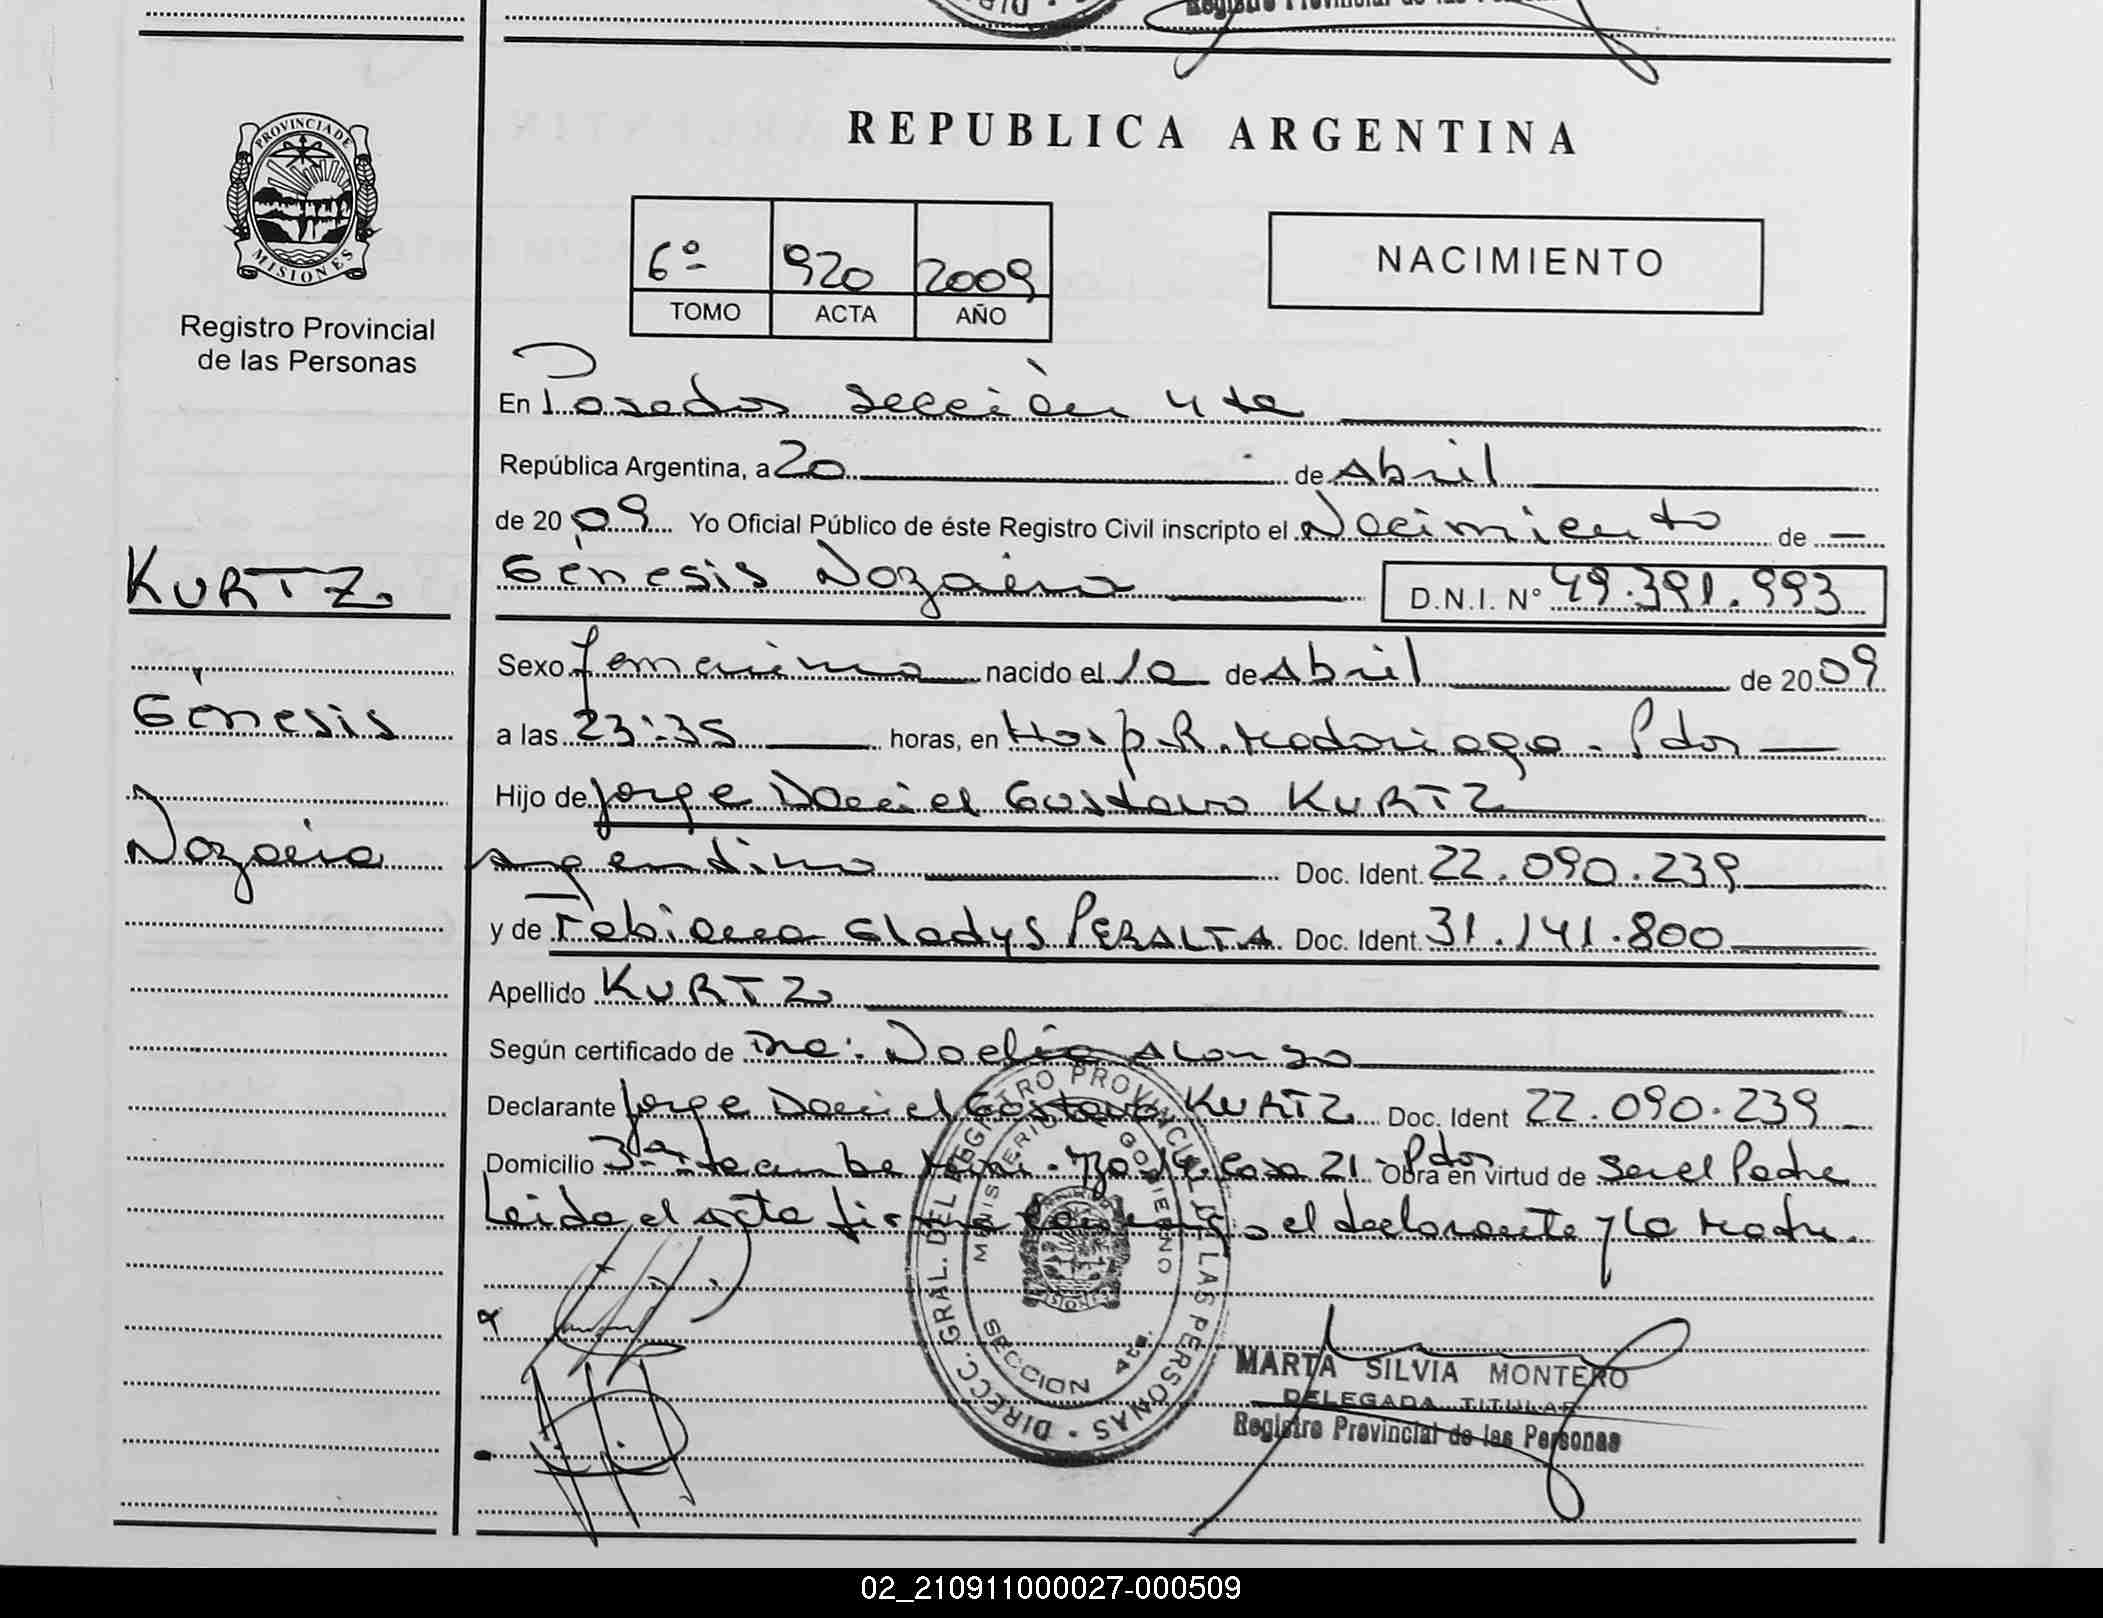 Registro Provincial de las Personas
PROVINCIA DE MISIONES
Registro Provincial
de las Personas
REPUBLICA ARGENTINA
6º 920 2009
TOMO ACTA AÑO
NACIMIENTO
En Posadas Sección 4ta
República Argentina, a 20 de Abril
de 2009 Yo Oficial Público de éste Registro Civil inscripto el Nacimiento de
KURTZ
Génesis
D.N.I. Nº 49.391.993
Sexo femenino nacido el 10 de Abril de 2009
Génesis
a las 23:35 horas, en Hosp. R. Madariaga - Pdas
Hijo de Jorge Daniel Gustavo KURTZ
Argentino Doc. Ident. 22.090.239
y de Fabiana Gladys PERALTA Doc. Ident. 31.141.800
Apellido KURTZ
Según certificado de Dra. Noelia Alonso
Declarante Jorge Daniel Gustavo KURTZ Doc. Ident 22.090.239
Domicilio Casa 21 - Pdas Obra en virtud de Ser el Padre
Leída el acta el declarante y la Madre.
DIRECC. GRAL. DEL REGISTRO PROVINCIAL DE LAS PERSONAS
MINISTERIO DE GOBIERNO
SECCION 4ta.
MARTA SILVIA MONTERO
DELEGADA TITULAR
Registro Provincial de las Personas
02_210911000027-000509